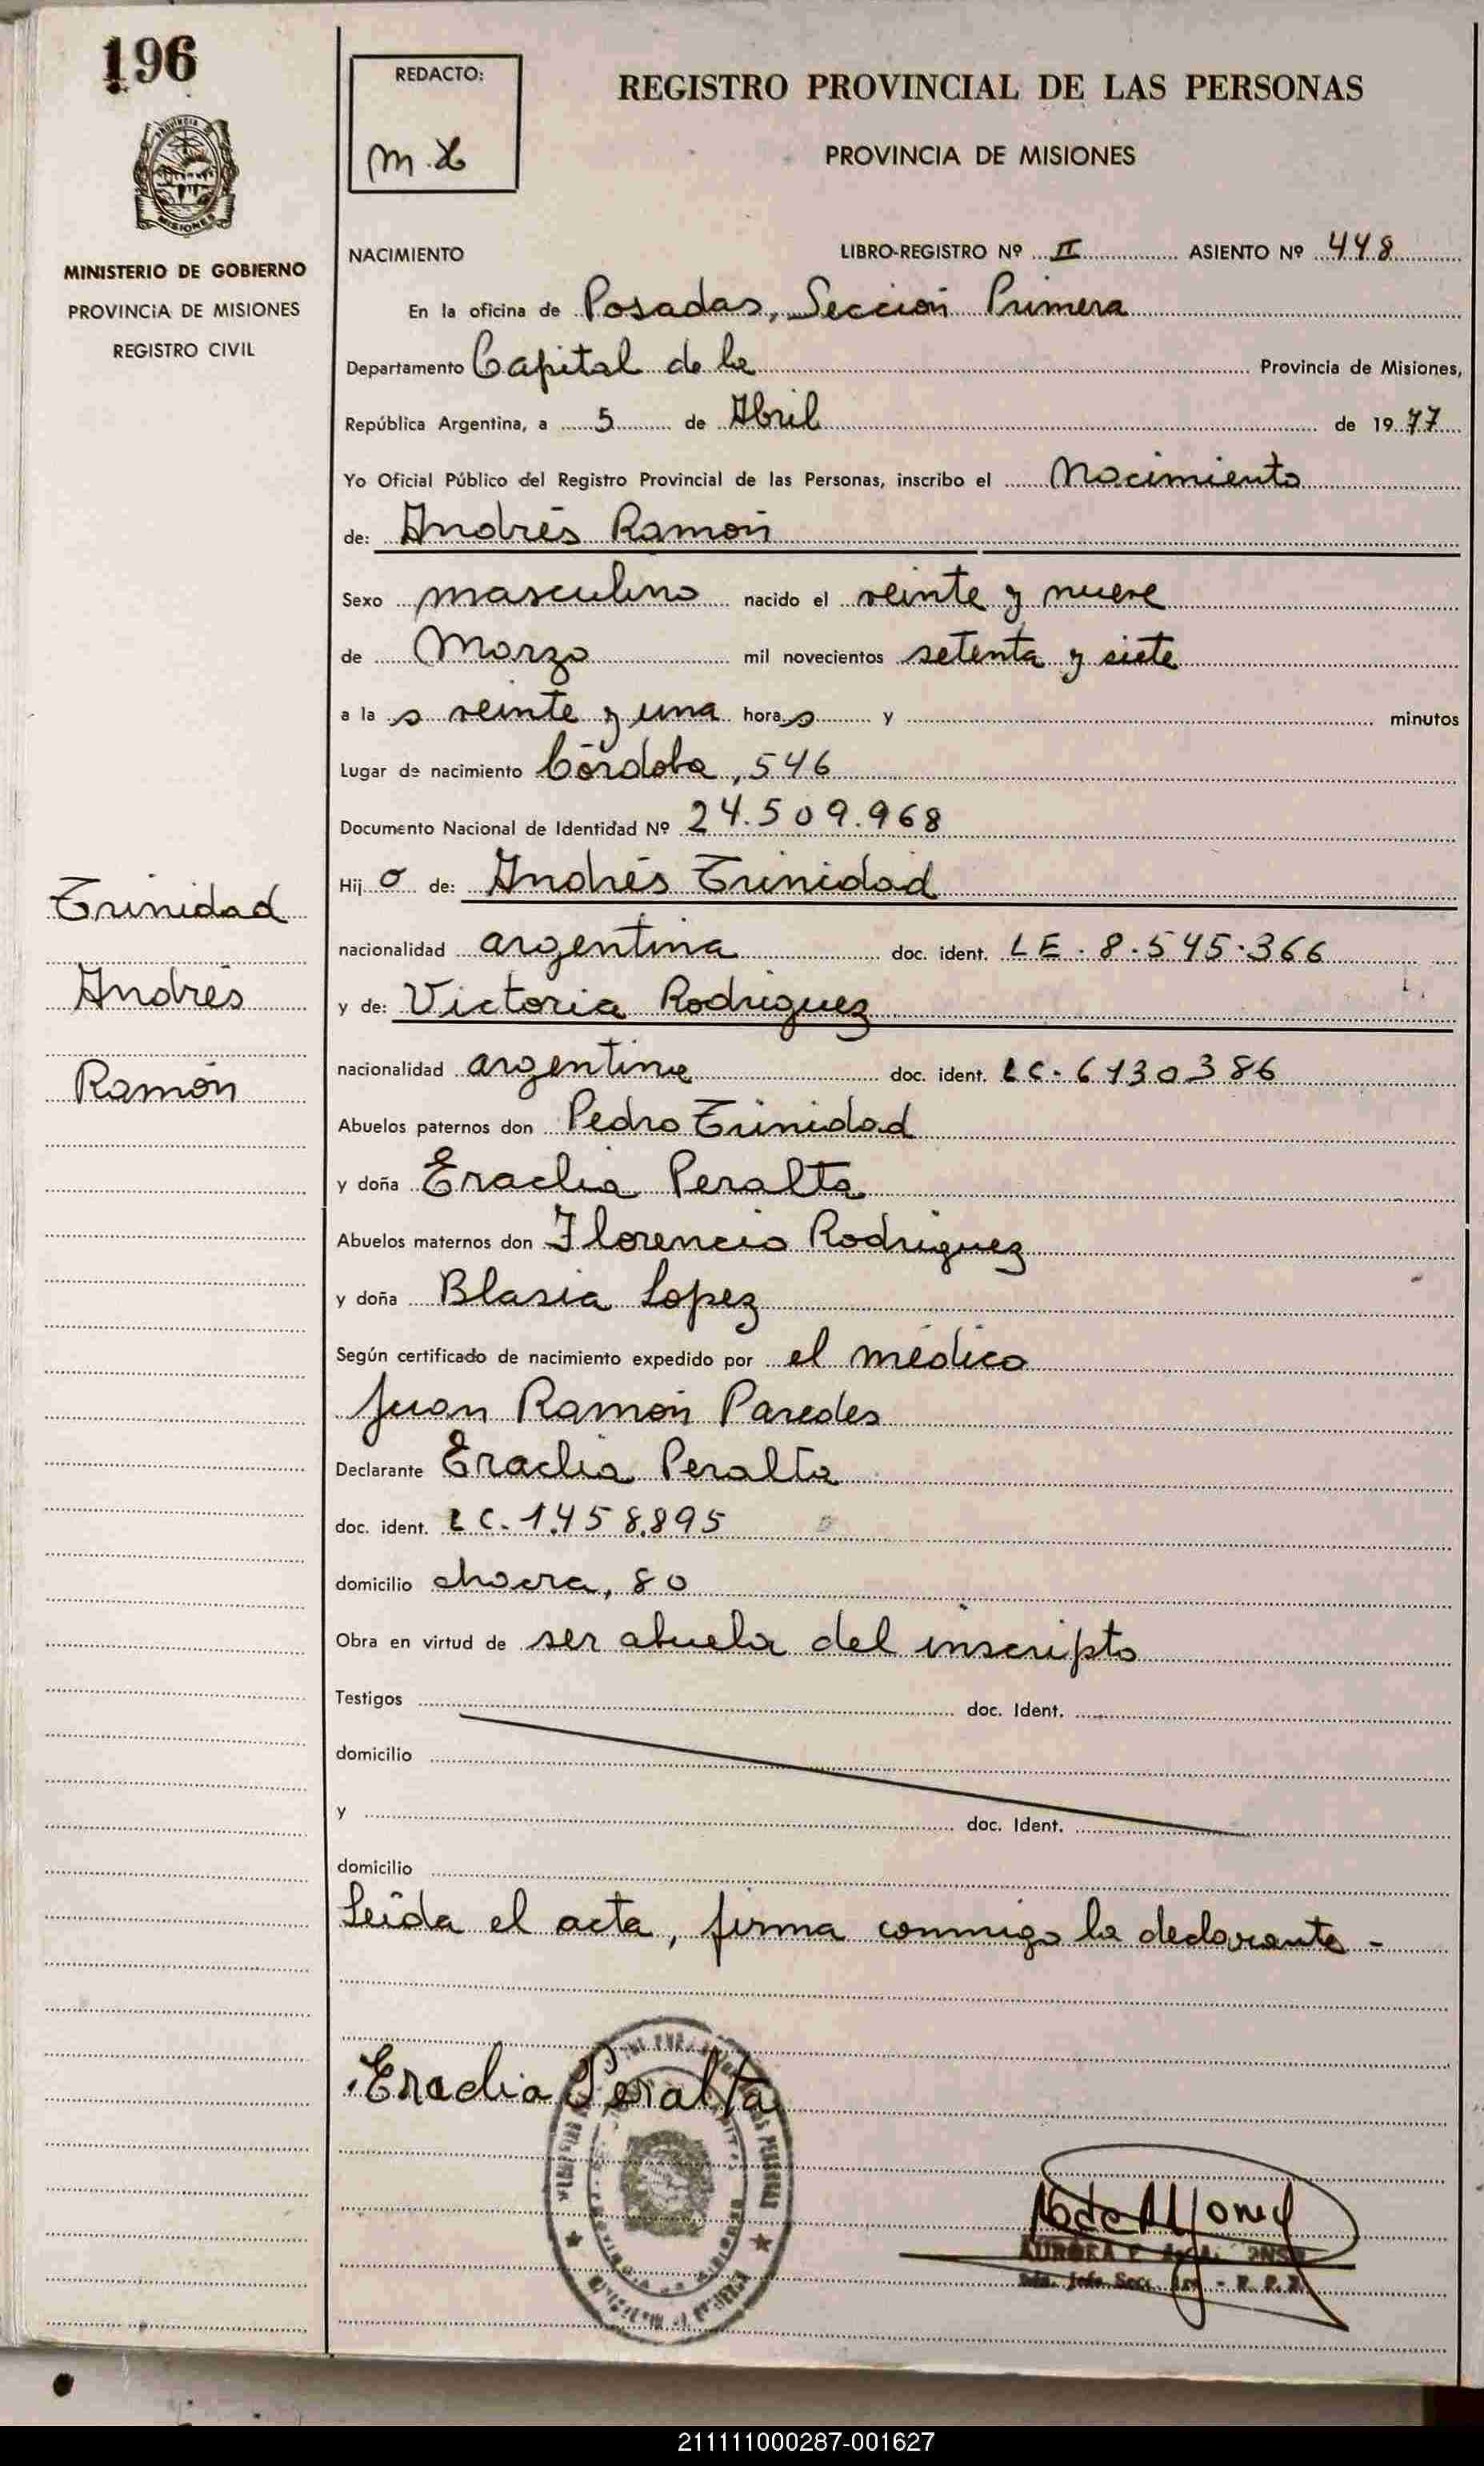 196
REDACTO:
REGISTRO PROVINCIAL DE LAS PERSONAS
PROVINCIA DE MISIONES
MISIONES
MINISTERIO DE GOBIERNO
PROVINCIA DE MISIONES
REGISTRO CIVIL
NACIMIENTO LIBRO-REGISTRO Nº II ASIENTO Nº 448
En la oficina de Posadas, Sección Primera
Departamento Capital de la Provincia de Misiones,
República Argentina, a 5 de Abril de 1977
Yo Oficial Público del Registro Provincial de las Personas, inscribo el Nacimiento
de: Andrés Ramón
Sexo masculino nacido el veinte y nueve
de Marzo mil novecientos setenta y siete
a la s veinte y una hora s y minutos
Lugar de nacimiento Córdoba, 546
Documento Nacional de Identidad Nº 24.509.968
Hij o de: Andrés Trinidad
nacionalidad argentina doc. ident. LE. 8.545.366
y de: Victoria Rodriguez
nacionalidad argentina doc. ident. LC. 6130386
Abuelos paternos don Pedro Trinidad
y doña Eraclia Peralta
Abuelos maternos don Florencio Rodriguez
y doña Blasia Lopez
Según certificado de nacimiento expedido por el médico
Juan Ramón Paredes
Declarante Eraclia Peralta
doc. ident. LC. 1.458.895
domicilio chacra, 80
Obra en virtud de ser abuela del inscripto
Testigos doc. Ident.
domicilio
y doc. Ident.
domicilio
Leída el acta, firma conmigo la declarante -
Eraclia Peralta
Trinidad
Andrés
Ramón
211111000287-001627